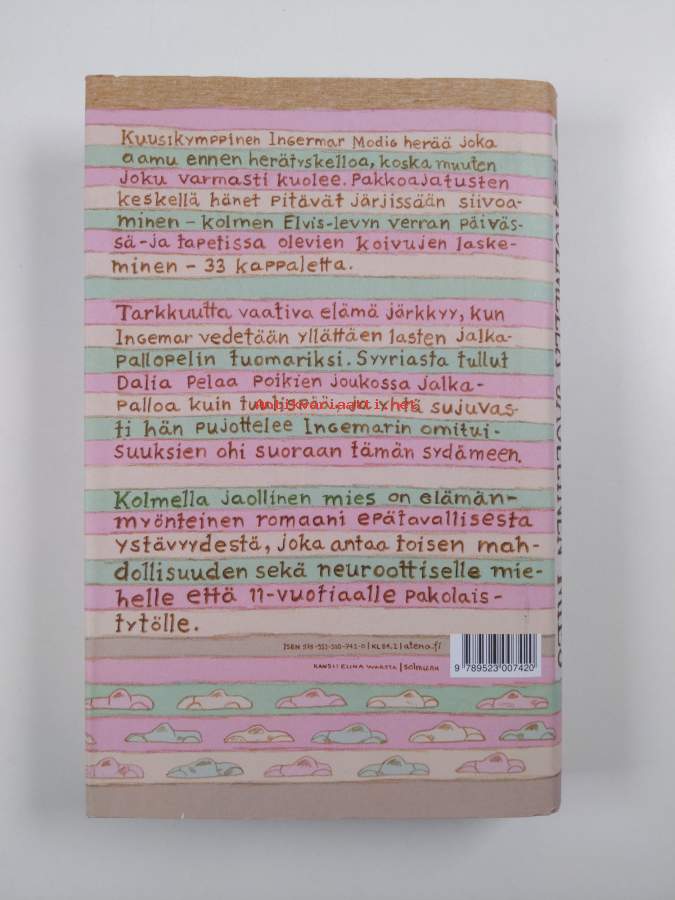 Kuusikymppinen Ingermar Modig herää joka
aamu ennen herätyskelloa, koska muuten
joku varmasti kuolee. Pakkoajatusten
keskellä hänet pitävät järjissään siivoa-
minen – kolmen Elvis-levyn verran päiväs-
sä – ja tapetissa olevien koivujen laske-
minen – 33 kappaletta.
Tarkkuutta vaativa elämä järkkyy, kun
Ingemar vedetään yllättäen lasten jalka-
pallopelin tuomariksi. Syyriasta tullut
Dalia pelaa poikien joukossa jalka-
palloa kuin tuulispää, ja yhtä sujuvas-
ti hän pujottelee Ingemarin omitui-
suuksien ohi suoraan tämän sydämeen.
Kolmella jaollinen mies on elämän-
myönteinen romaani epätavallisesta
ystävyydestä, joka antaa toisen mah-
dollisuuden sekä neuroottiselle mie-
helle että 11-vuotiaalle pakolais-
tytölle.
ISBN 978-952-300-742-0 | KL 84.2 | atena.fi
KANSI: ELINA WARSTA | Solmu.nu
9 789523 007420
antikvariaatti.net
KOLMELLA JAOLLINEN MIES